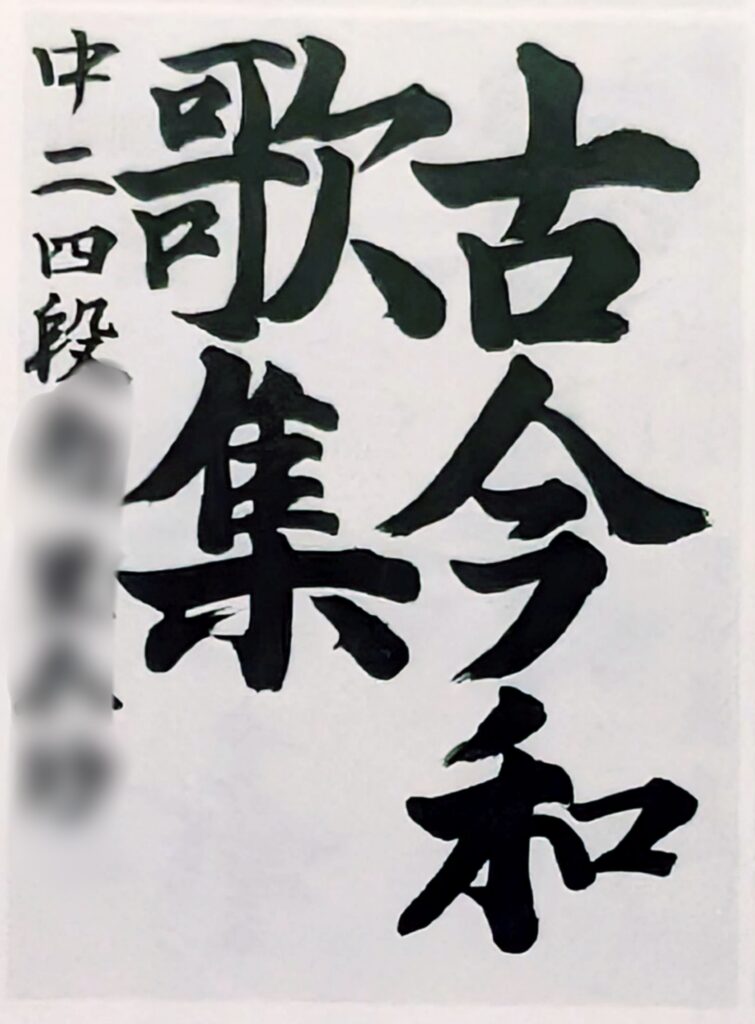 古今和
歌集
中二四段